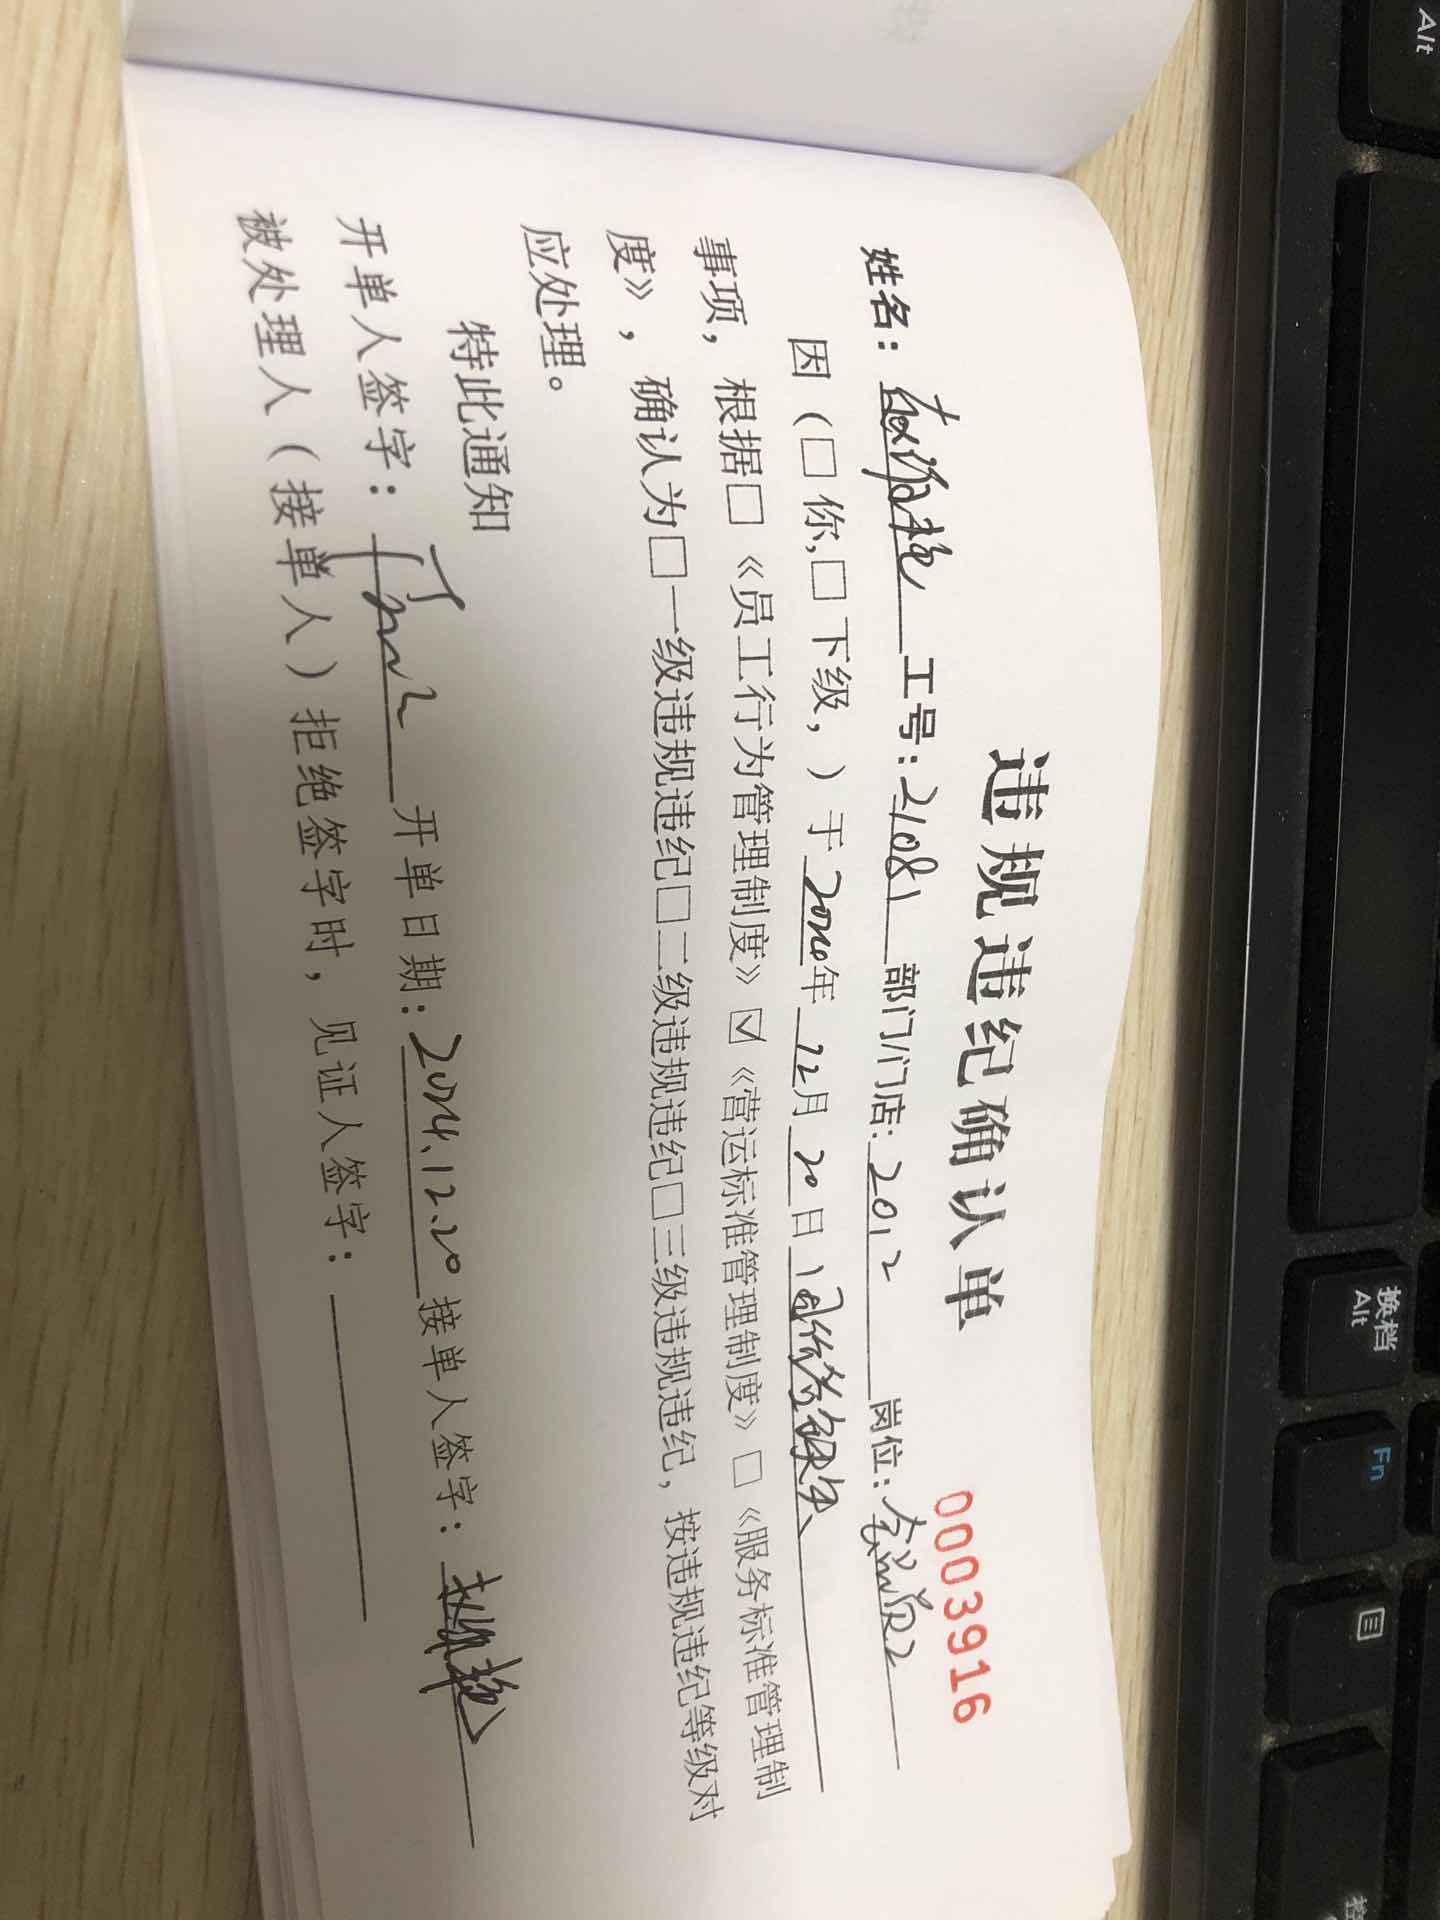 违规违纪确认单
0003916
姓名: 工号:21081 部门/门店:2012 岗位:
因(□你,□下级, )于2020年12月20日
事项,根据□《员工行为管理制度》☑《营运标准管理制度》□《服务标准管理制
度》,确认为□一级违规违纪□二级违规违纪□三级违规违纪,按违规违纪等级对
应处理。
特此通知
开单人签字: 开单日期:2024.12.20 接单人签字:
被处理人(接单人)拒绝签字时,见证人签字:
Alt
换档
Alt
Fn